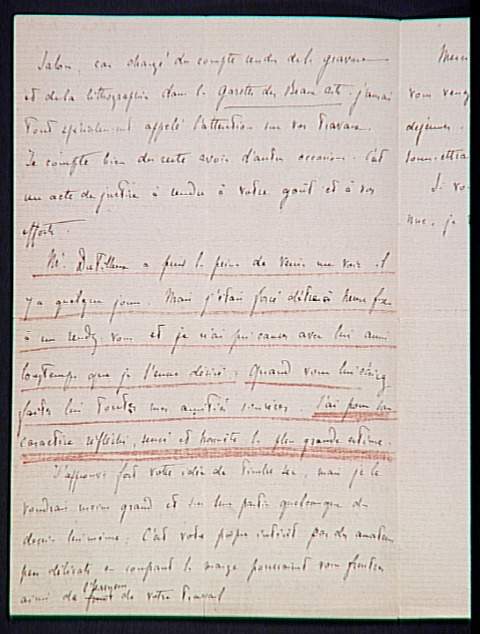 Salon, car chargé du compte rendu de la gravure
et de la lithographie dans la Gazette des Beaux arts j'aurai
tout spécialement appelé l'attention sur vos travaux.
Je compte bien du reste avoir d'autres occasions. C'est
un acte de justice à rendre à votre goût et à vos
efforts.
Mr. Dutilleux a pris la peine de venir me voir il
y a quelques jours. Mais j'étais forcé d'être à heure fixe
à un rendez-vous et je n'ai pu causer avec lui aussi
longtemps que je l'eusse désiré. Quand vous lui écrirez
faites lui toutes mes amitiés sincères. J'ai pour son
caractère réfléchi, sensé et honnête la plus grande estime.
J'approuve fort votre idée de timbre sec, mais je le
voudrais moins grand et sur une partie quelconque du
dessin lui même. C'est votre propre intérêt car des amateurs
peu délicats en coupant la marge pourraient vous frustrer
ainsi de de votre travail
Merci
vous
déjeuner.
Si vo
je